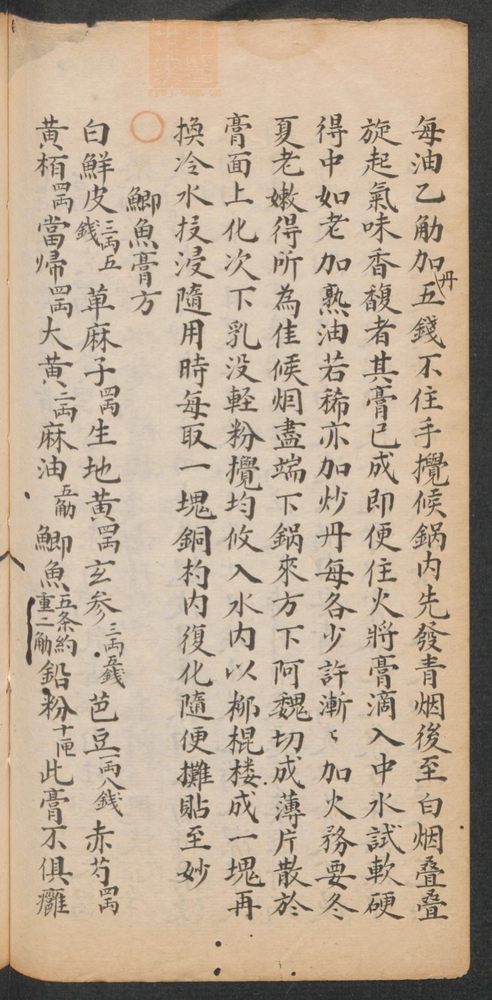 每油乙觔加丹五錢不住手攪候鍋内先發青烟後至白烟叠叠
旋起氣味香馥者其膏已成即便住火將膏滴入中水試軟硬
得中如老加熟油若稀亦加炒丹每各少許漸々加火務要冬
夏老嫩得所為佳候烟盡端下鍋來方下阿魏切成薄片散於
膏面上化次下乳没輕粉攪均攸入水内以桞棍搂成一塊再
換冷水投浸隨用時每取一塊銅杓内復化隨便攤貼至妙
〇
鯽魚膏方
白鮮皮三両五錢 萆麻子四両 生地黄四両 玄参三両五錢 芭豆一両八錢 赤芍四両
黄栢四両 當歸四両 大黄二両 麻油五觔 鯽魚五条約重二觔 鉛粉十匣 此膏不俱癰